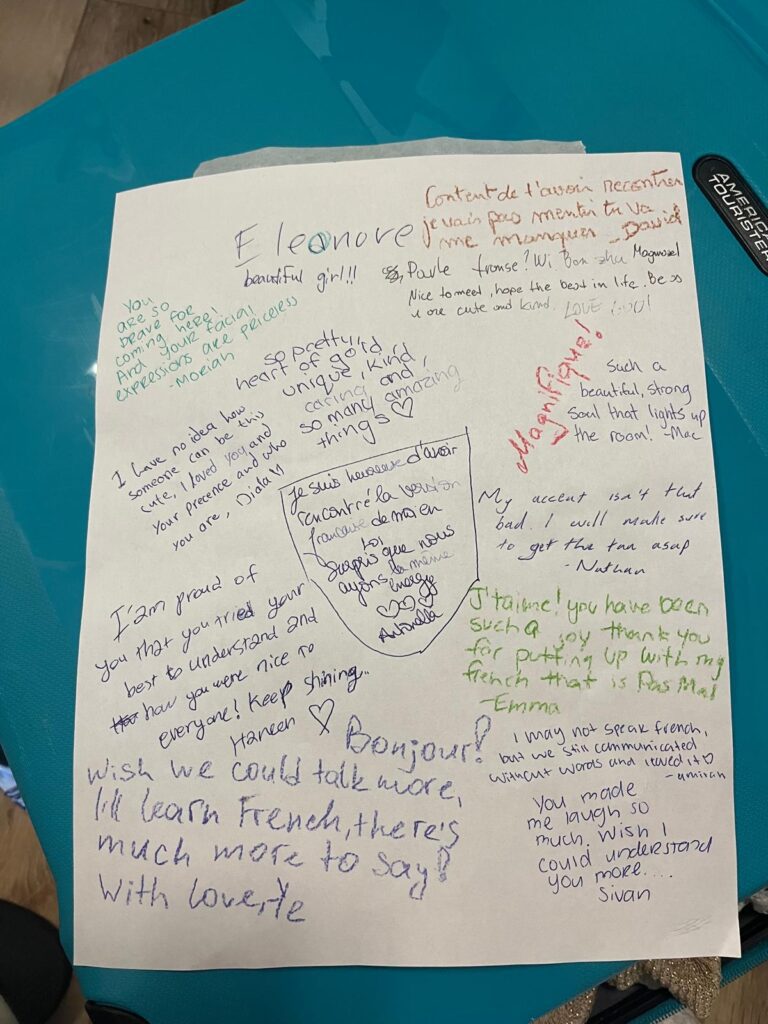 Eleonore
beautiful girl!!!
Content de t'avoir recontrer
je vais pas mentir tu va
me manquer - David
Parle fronse? Wi Bon shu Magwazel
Nice to meet, hope the best in life. Be as
u are cute and kind. LOVE YOU!
You
are so
brave for
coming here!
And your facial
expressions are priceless
-Moriah
so pretty,
heart of gold,
unique, kind,
caring and
so many amazing
things ♡
Magnifique!
Such a
beautiful, strong
soul that lights up
the room! -Mac
I have no idea how
someone can be this
cute, I loved you, and
your precence and who
you are, Diala !!
Je suis heureuse d'avoir
rencontré la version
francaise de moi en
toi
Surpris que nous
ayons la même
énergie
♡♡♡
Antonella
My accent isn't that
bad. I will make sure
to get the tan asap
- Nathan
I'am proud of
you that you tried your
best to understand and
how you were nice to
everyone! Keep shining..
Haneen ♡
J'taime! you have been
such a joy thank you
for putting up with my
french that is Pas Mal
-Emma
Bonjour!
Wish we could talk more,
I'll learn French, there's
much more to say!
With love, Ye
I may not speak french,
but we still communicated
without words and loved it ♡
- amiran
You made
me laugh so
much. Wish I
could understand
you more....
Sivan
AMERICAN
TOURISTER